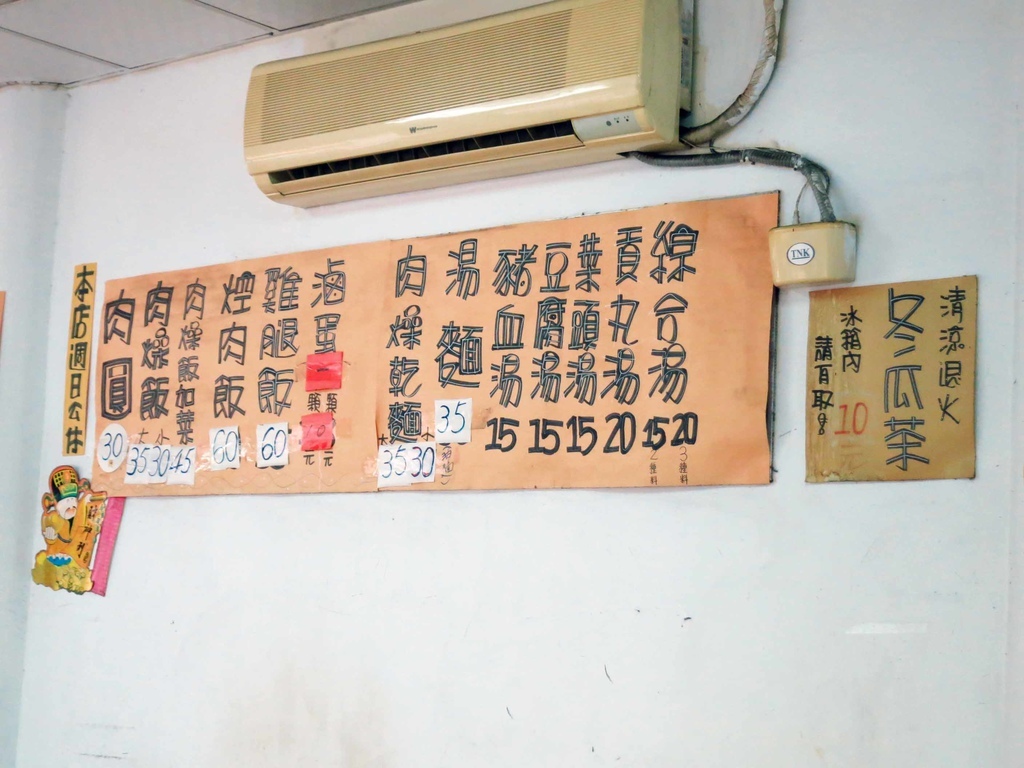 本店週日公休
肉圓 30
肉燥飯 大35 小30
肉燥飯加菜 45
焢肉飯 60
雞腿飯 60
滷蛋 一顆 10元
肉燥乾麵 大35 小30
湯麵 35
豬血湯 15
豆腐湯 15
菜頭湯 15
貢丸湯 20
綜合湯 15 2種料 20 3種料
TNK
清涼退火
冬瓜茶
冰箱內 10
請自取